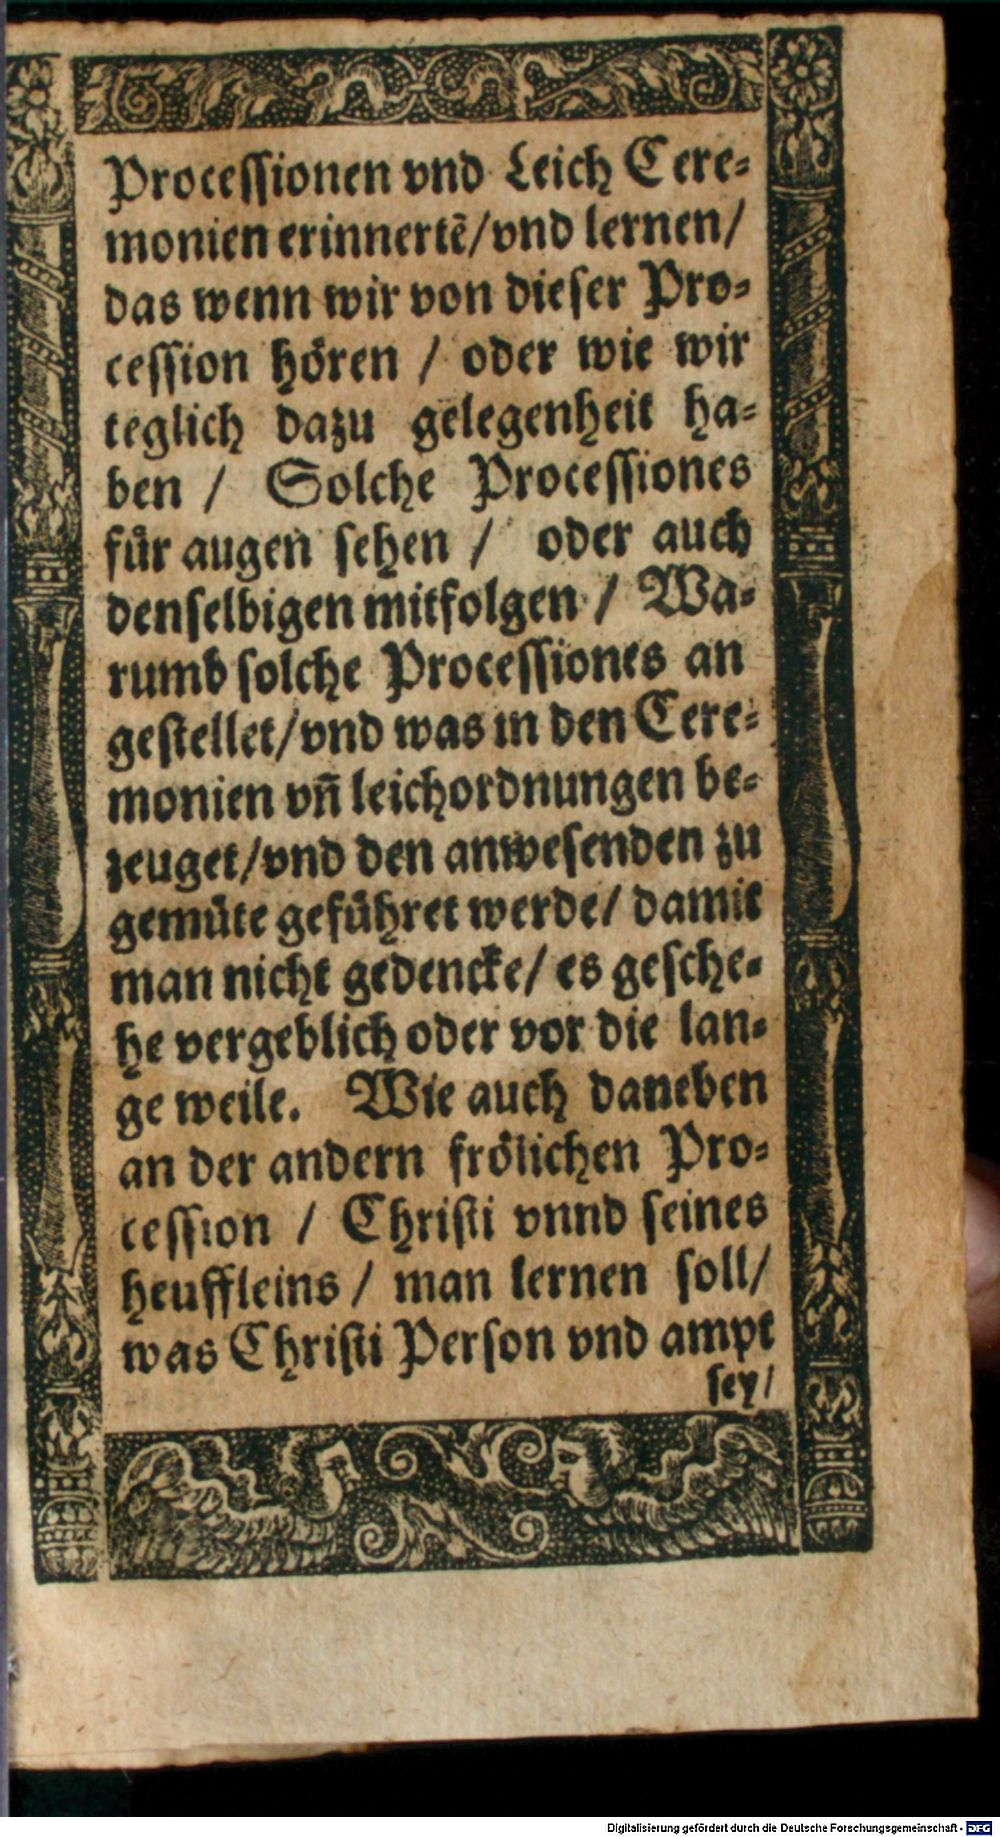 Processionen vnd Leich Cere⸗
monien erinnertẽ/vnd lernen/
das wenn wir von dieser Pro⸗
cession hören / oder wie wir
teglich dazu gelegenheit ha⸗
ben / Solche Processiones
für augen sehen / oder auch
denselbigen mitfolgen / Wa⸗
rumb solche Processiones an
gestellet/vnd was in den Cere⸗
monien vñ leichordnungen be⸗
zeuget/vnd den anwesenden zu
gemüte geführet werde/ damit
man nicht gedencke/ es gesche⸗
he vergeblich oder vor die lan⸗
ge weile. Wie auch daneben
an der andern frölichen Pro⸗
cession / Christi vnnd seines
heuffleins / man lernen soll/
was Christi Person vnd ampt
sey/
Digitalisierung gefördert durch die Deutsche Forschungsgemeinschaft - DFG